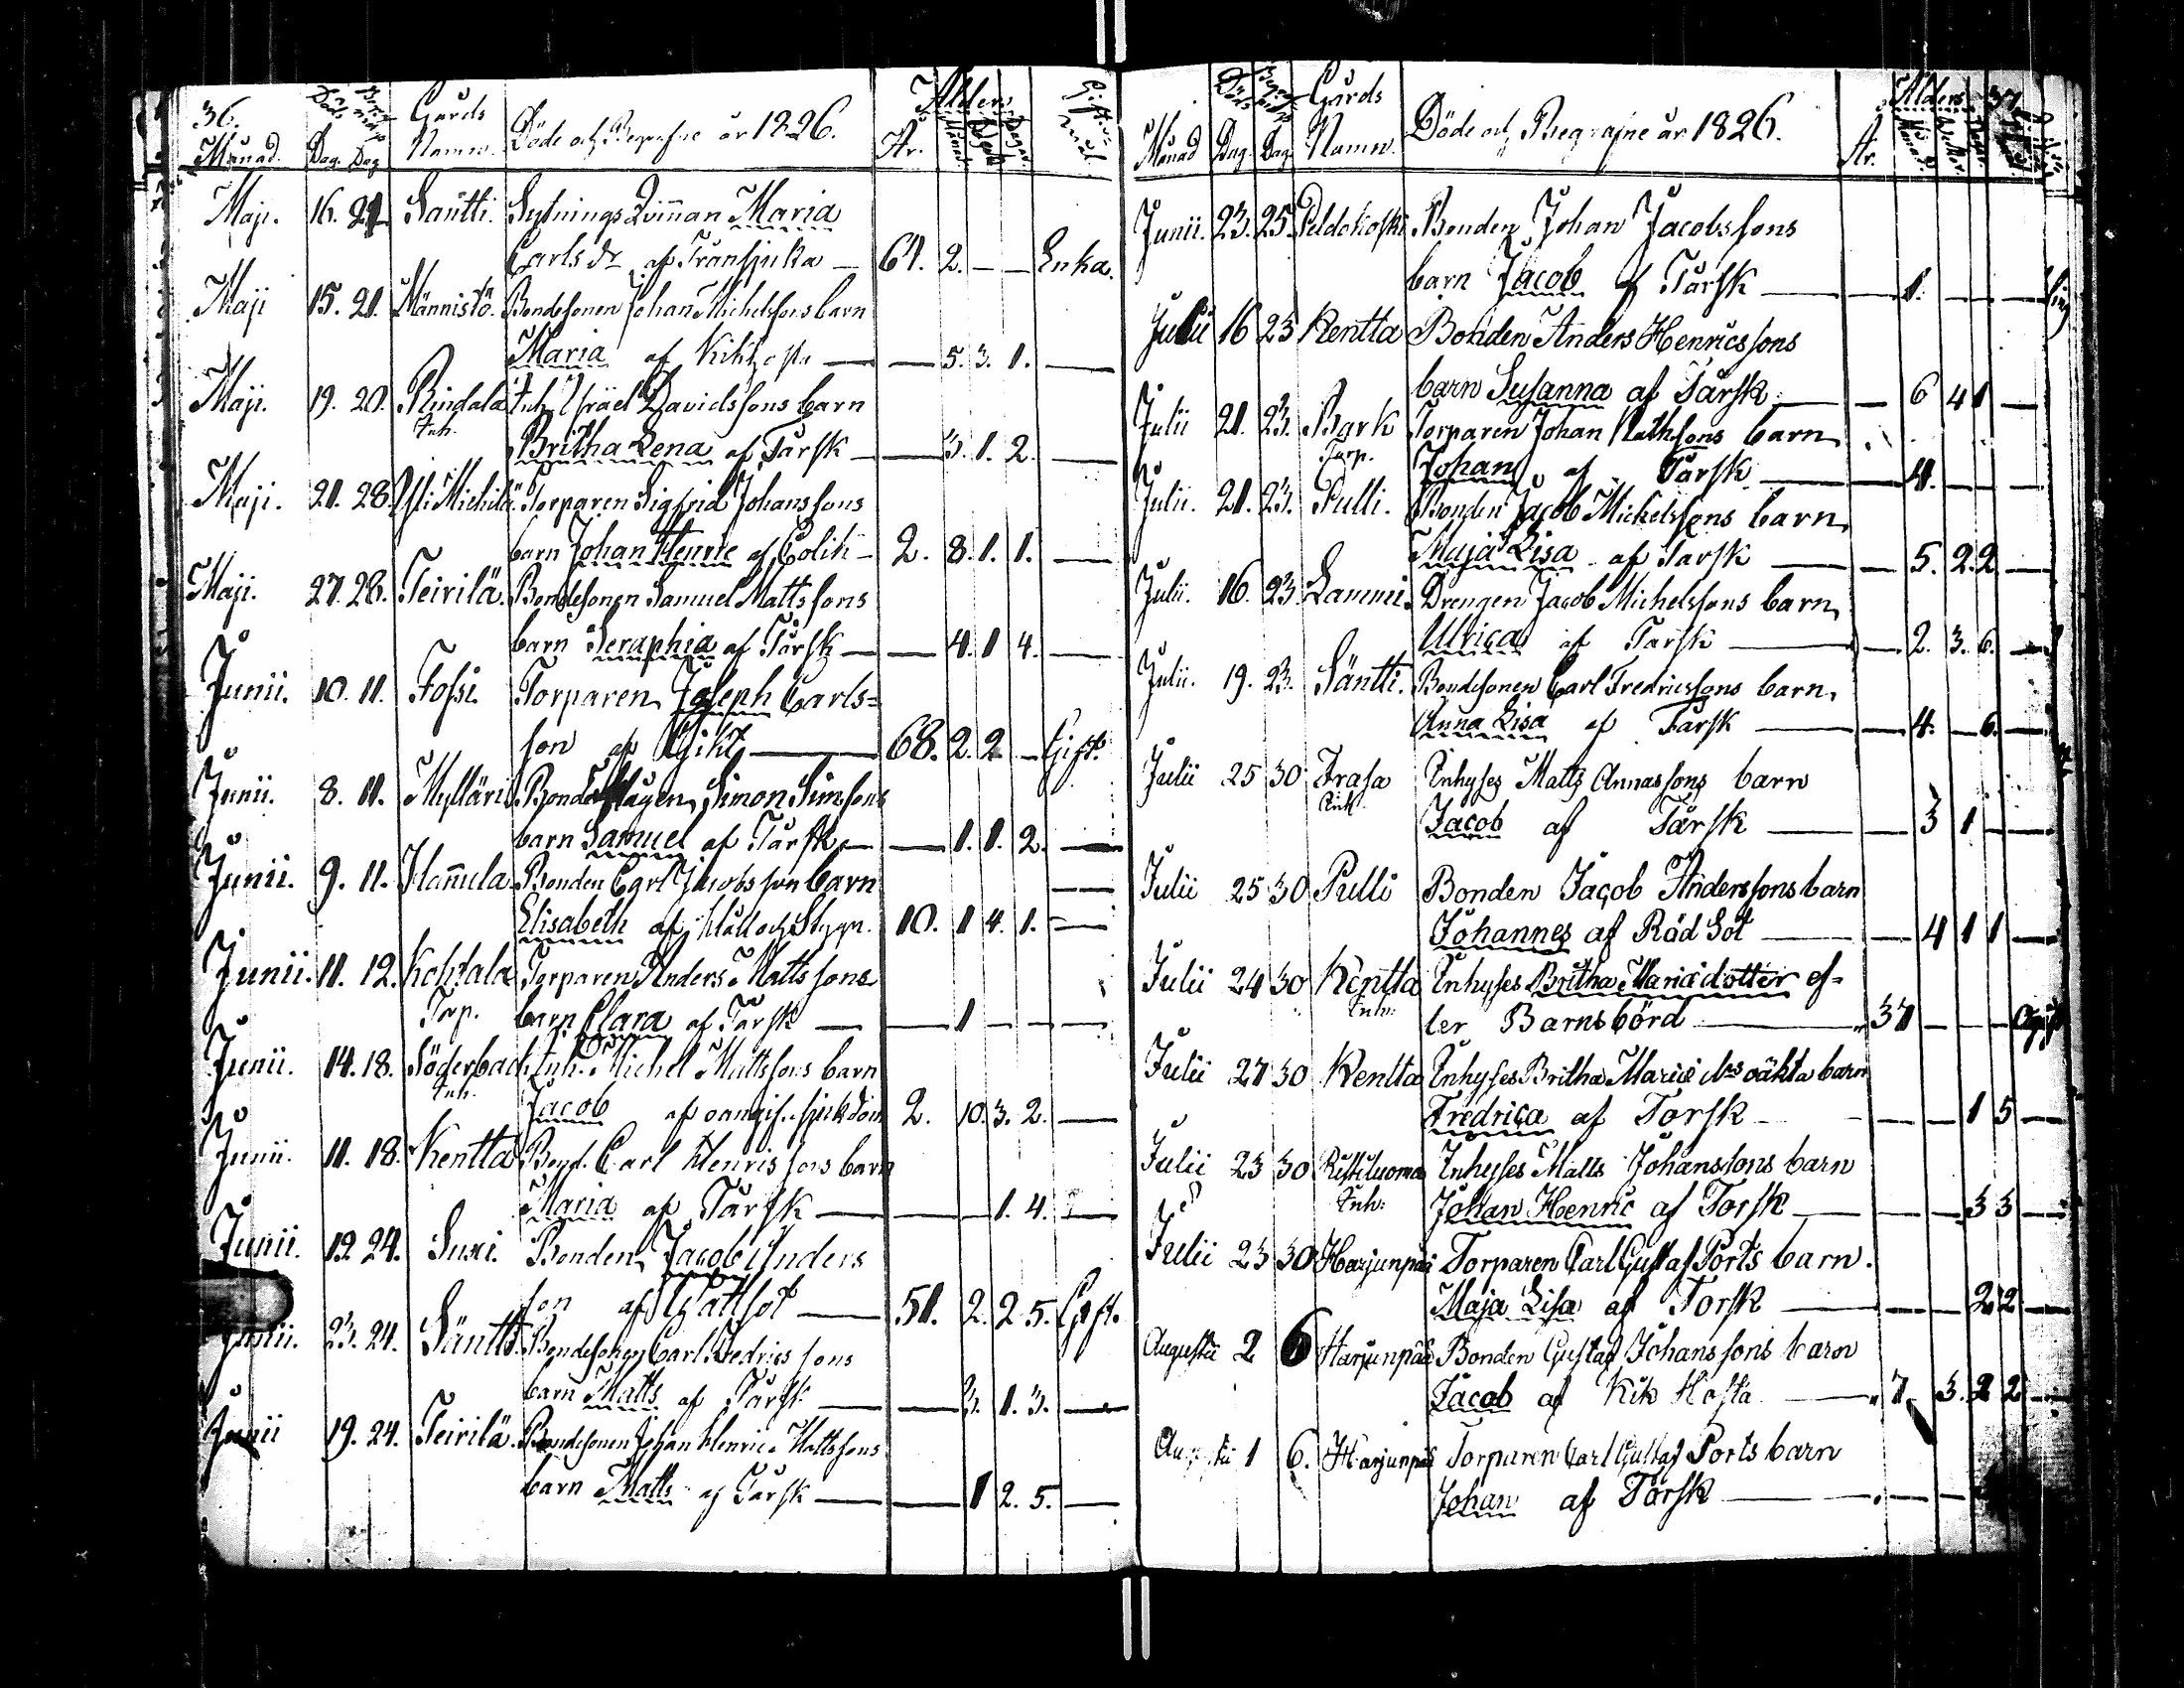 36.
Månad. Döds Dag Begrafnings Dag Gårds Namn. Döde och Begrafne år 1826. Ålders År. Månad. Dagar. Gifter-mål.
Maji. 16. 21 Säntti. Sytnings Qvinnan Maria
Carls dr af Trånsjuka — 61. 2. — — Enka.
Maji 15. 21. Männistö. Bondesonen Johan Michelssons barn
Maria af Kikhosta — — 5. 3. 1. —
Maji. 19. 20. Rindala Inh. Israel Davidssons barn
Inh. Britha Lena af Tårsk — — 3. 1. 2. —
Maji. 21. 28. Michila. Torparen Sigfrid Johanssons
barn Johan Henric af Colik — 2. 8. 1. 1. —
Maji. 27. 28. Teirilä. Bondesonen Samuel Mattssons
barn Seraphia af Tårsk — — 4. 1 4. —
Junii. 10. 11. Fossi. Torparen Joseph Carls=
son af Gikt — 68. 2. 2 — Gift.
Junii. 8. 11. Mylläri Simon Simssons
barn Samuel af Tårsk — — 1. 1. 2. —
Junii. 9. 11. Hannula Bonden Carl Jacobsson barn
Elisabeth af Håll och Stygn. 10. 1 4. 1. —
Junii. 11. 12. Kohtala Torparen Anders Mattssons
Torp. barn Clara af Tårsk — — 1 — — —
Junii. 14. 18. Söderback Inh. Michel Mattssons barn
Inh. Jacob af oangif. sjukdom 2. 10. 3. 2. —
Junii. 11. 18. Kentta Bond. Carl Henrissons barn
Maria af Tårsk — — — 1. 4. —
Junii. 19. 24. Susi. Bonden Jacob Anders
son af Wattsot — 51. 2. 2. 5. Gift.
Junii. 23. 24. Säntti Bondesonen Carl Fredricssons
barn Matts af Tårsk — — 3. 1. 3. —
Junii 19. 24. Teirilä. Bondesonen Johan Henric Mattssons
barn Matts af Tårsk — — 1 2. 5. —
37.
Månad Döds Dag. Begrafnings Dag. Gårds Namn. Döde och Begrafne år 1826. År. Ålders Månad.
Junii. 23. 25. Peldokoski Bonden Johan Jacobssons
barn Jacob af Tårsk — — 1. — — —
Julii 16 23 Kentta Bonden Anders Henricssons
barn Susanna af Tårsk. — — 6 4 1 —
Julii 21. 23. Bark Torparen Johan Mathsons barn
Torp. Johan af Tårsk — 4. — — —
Julii. 21. 23. Pulli. Bonden Jacob Michelssons barn,
Maja Lisa af Tårsk — — 5. 2. 2. —
Julii. 16. 23. Lammi. Drengen Jacob Michelssons barn,
Ulrica af Tårsk — — 2. 3. 6. —
Julii. 19. 23. Säntti. Bondesonen Carl Fredricssons barn,
Anna Lisa af Tårsk — — 4. — 6. —
Julii 25 30 Frasa Inhyses Matts Annassons barn
Inh. Jacob af Tårsk — — 3 1 — —
Julii 25 30 Pulli Bonden Jacob Anderssons barn
Johannes af Röd Sot — — 4 1 1 —
Julii 24 30 Kentta Inhyses Britha Mariædotter ef=
Inh. ter Barnsbörd — 37 — — — Ogift
Julii 27 30 Kentta Inhyses Britha Mariæ drs oäkta barn
Fredrica af Torsk — — — 1 5 —
Julii 23 30 Ristiluoma Inhyses Matts Johanssons barn
Inh: Johan Henric af Torsk — — — 3 3 —
Julii 23 30 Harjunpää Torparen Carl Gustaf Ports barn.
Maja Lisa af Torsk — — — 2 2 —
Augustii 2 6 Harjunpää Bonden Gustaf Johanssons barn
Jacob af Kik Hosta — 7 3. 2 2 —
Augustii 1 6. Harjunpää Torparen Carl Gustaf Ports barn
Johan af Torsk —